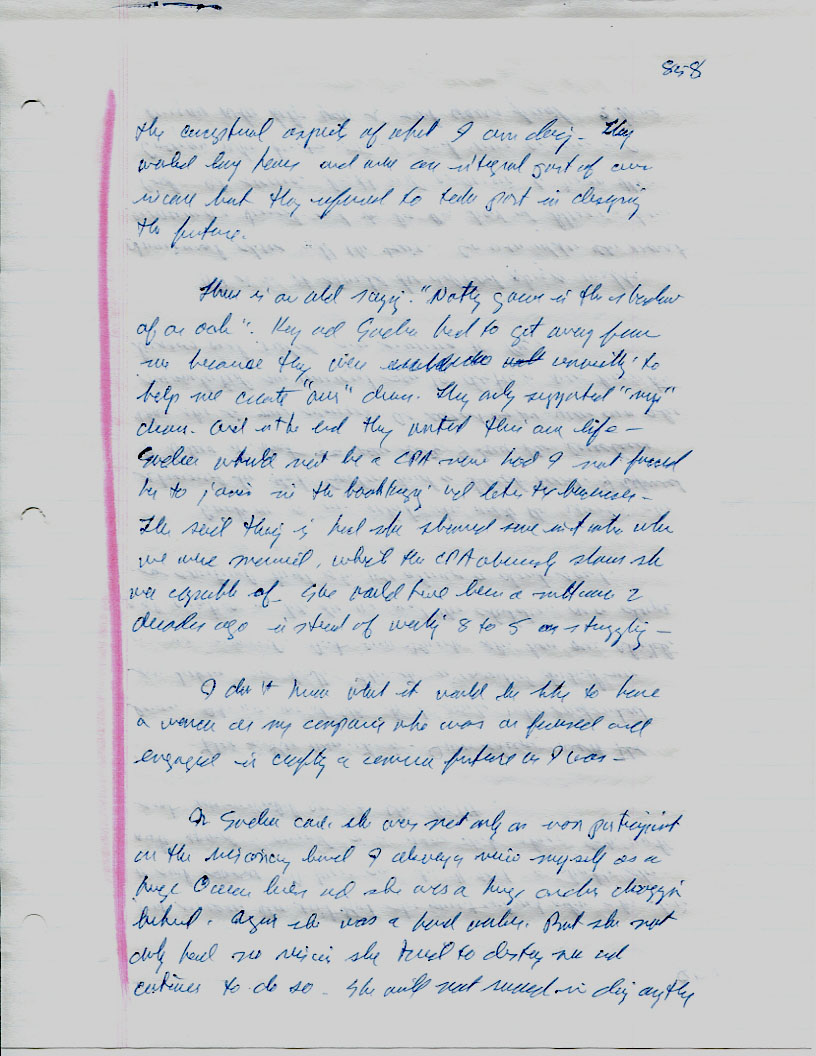 858
the conceptual aspects of what I am doing. They
worked long hours and were an integral part of our
income but they refused to take part in designing
the future.
There is an old saying. "Nothing grows in the shadow
of an oak". and had to get away from
me because they were unwilling to
help me create "our" dream. They only supported "my"
dream. And in the end they wanted their own life –
would not be a CPA now had I not forced
her to join in the bookkeeping and later tax business –
The sad thing is had she showed some initiative when
we were married, which the CPA obviously shows she
was capable of. She would have been a millionaire 2
decades ago instead of working 8 to 5 struggling –
I don't know what it would be like to have
a woman as my companion who was as focused and
engaged in crafting a common future as I was –
In case she was not only a non participant
on the visionary level I always view myself as a
huge Ocean liner and she was a huge anchor dragging
behind. Again she was a hard worker. But she not
only had no vision she tried to destroy me and
continues to do so. She will not succeed in doing anything